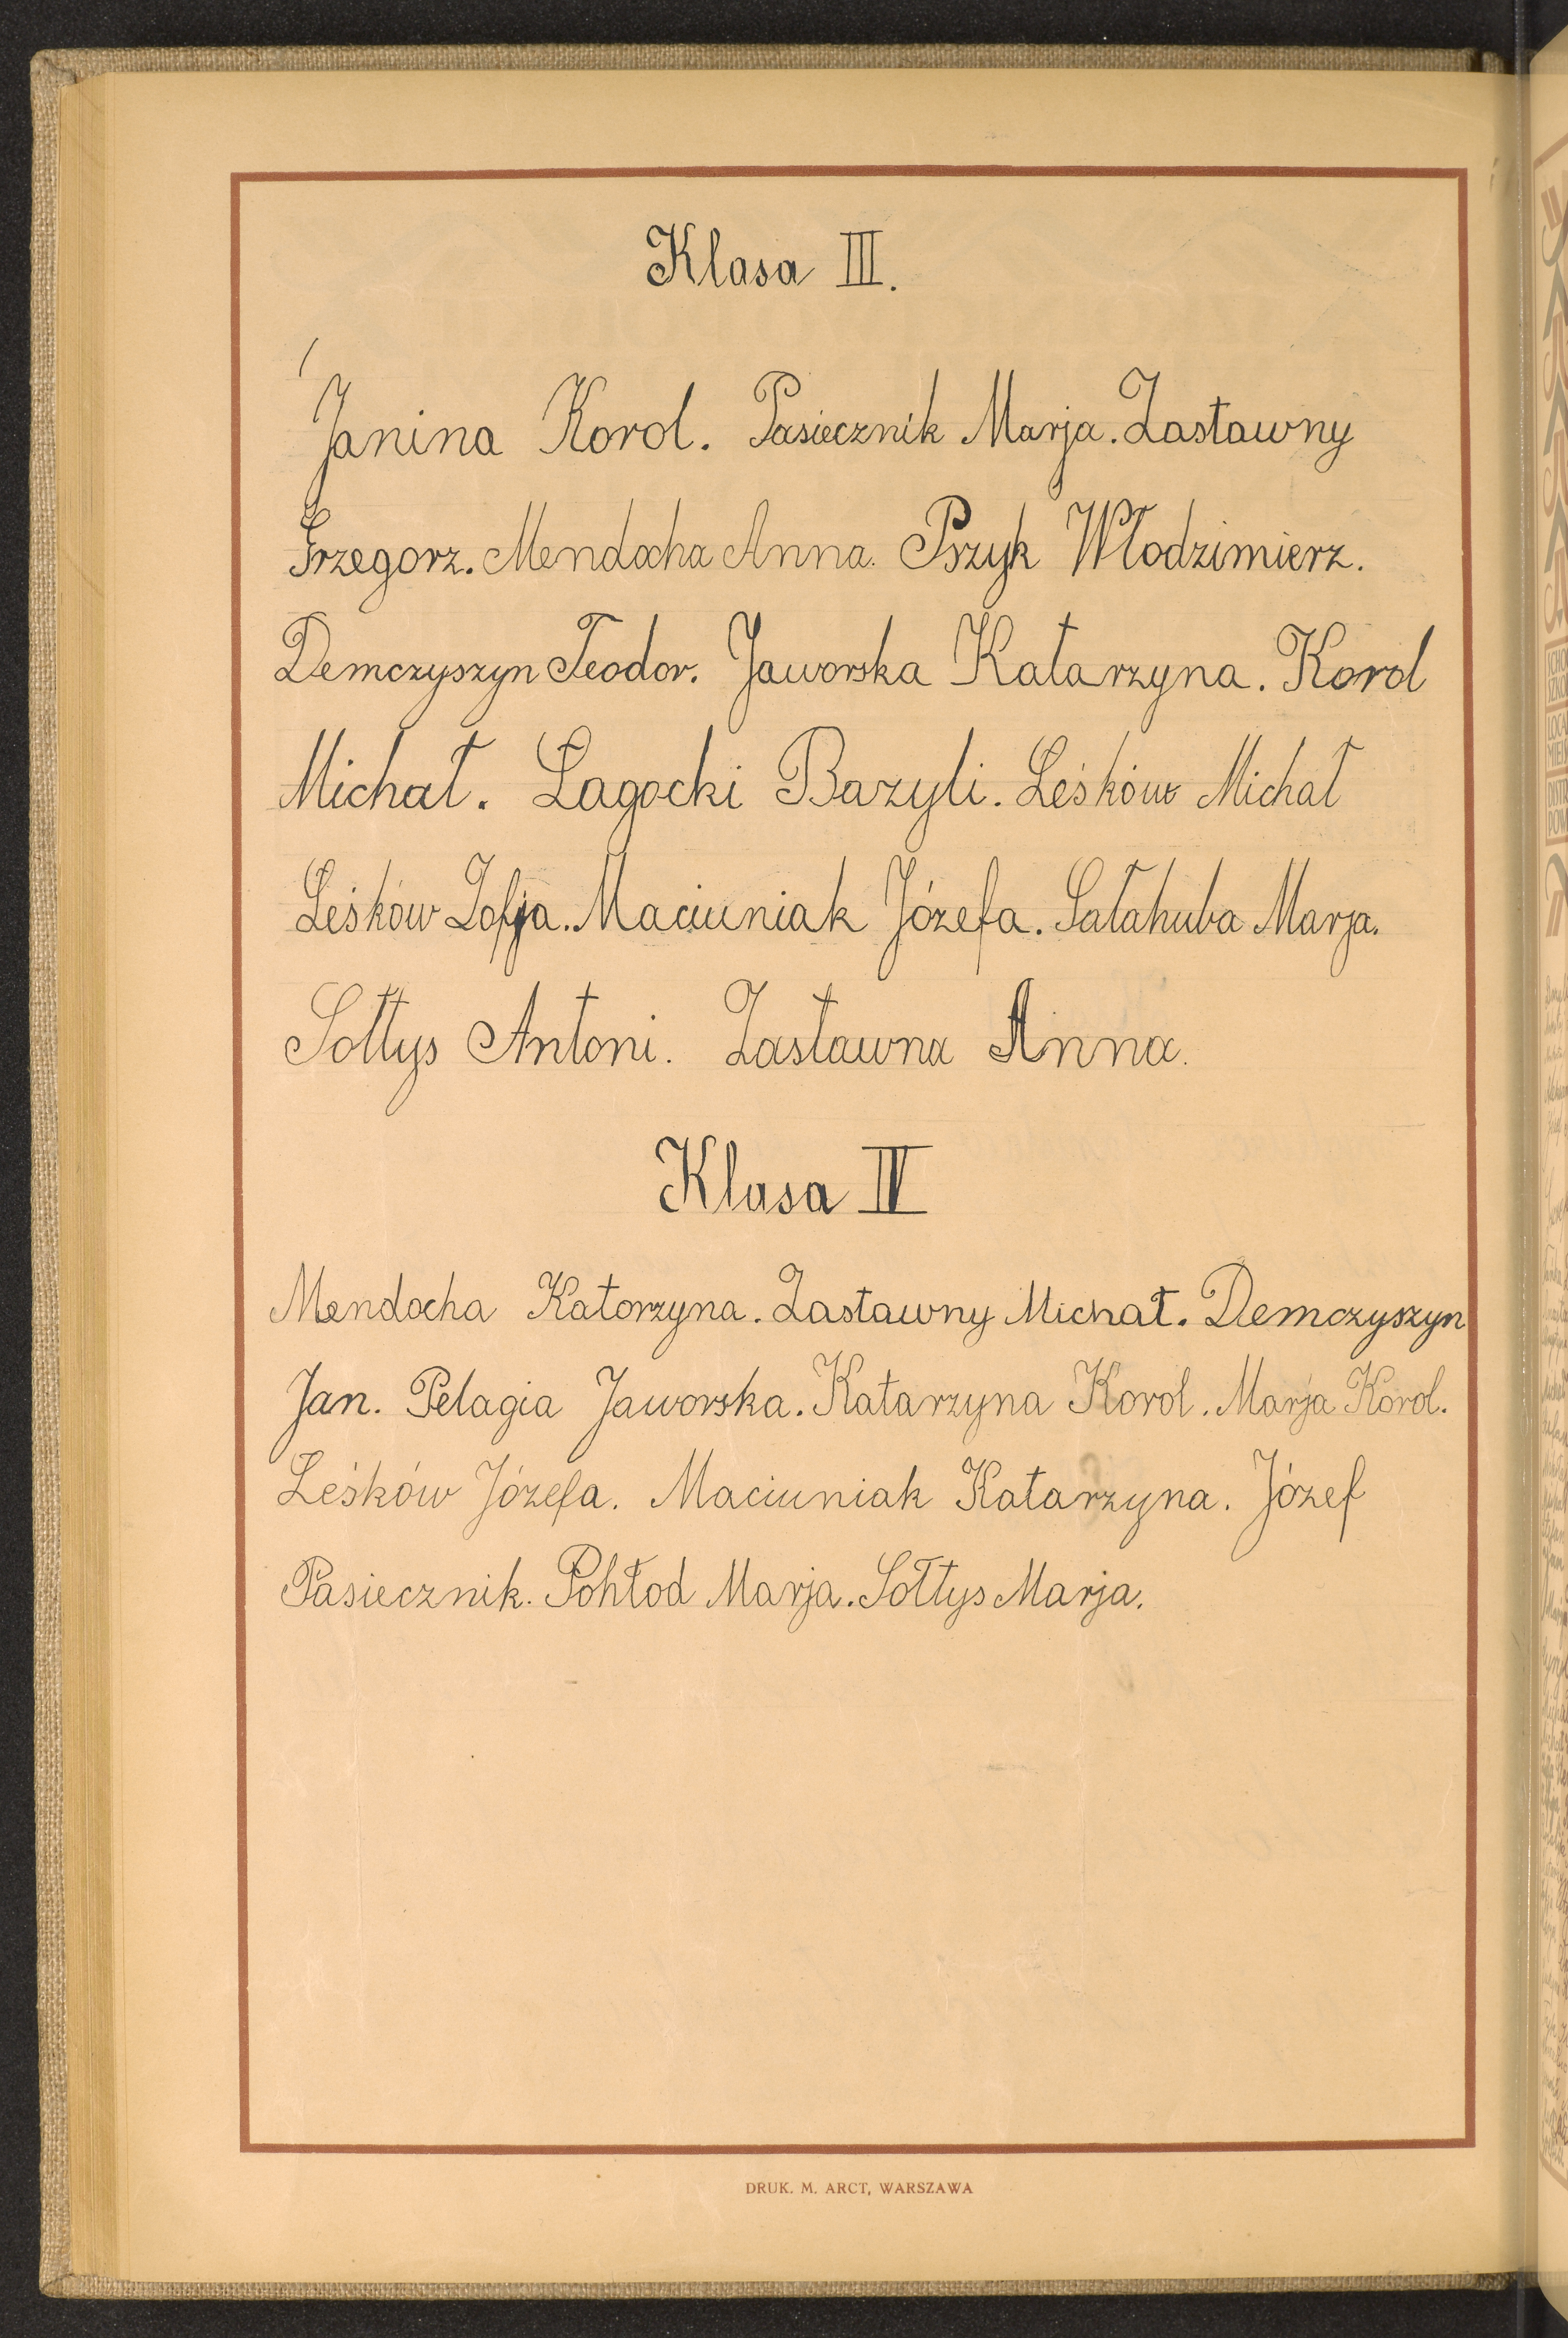 Klasa III.
Janina Korol. Pasiecznik Marja. Zastawny
Grzegorz. Mendocha Anna. Przyk Włodzimierz.
Demczyszyn Teodor. Jaworska Katarzyna. Korol
Michał. Łagocki Bazyli. Leśków Michał
Leśków Zofja. Maciuniak Józefa. Sałahuba Marja.
Sołtys Antoni. Zastawna Anna.
Klasa IV
Mendocha Katorzyna. Zastawny Michał. Demczyszyn
Jan. Pelagia Jaworska. Katarzyna Korol. Marja Korol.
Leśków Józefa. Maciuniak Katarzyna. Józef
Pasiecznik. Pohłod Marja. Sołtys Marja.
DRUK. M. ARCT, WARSZAWA